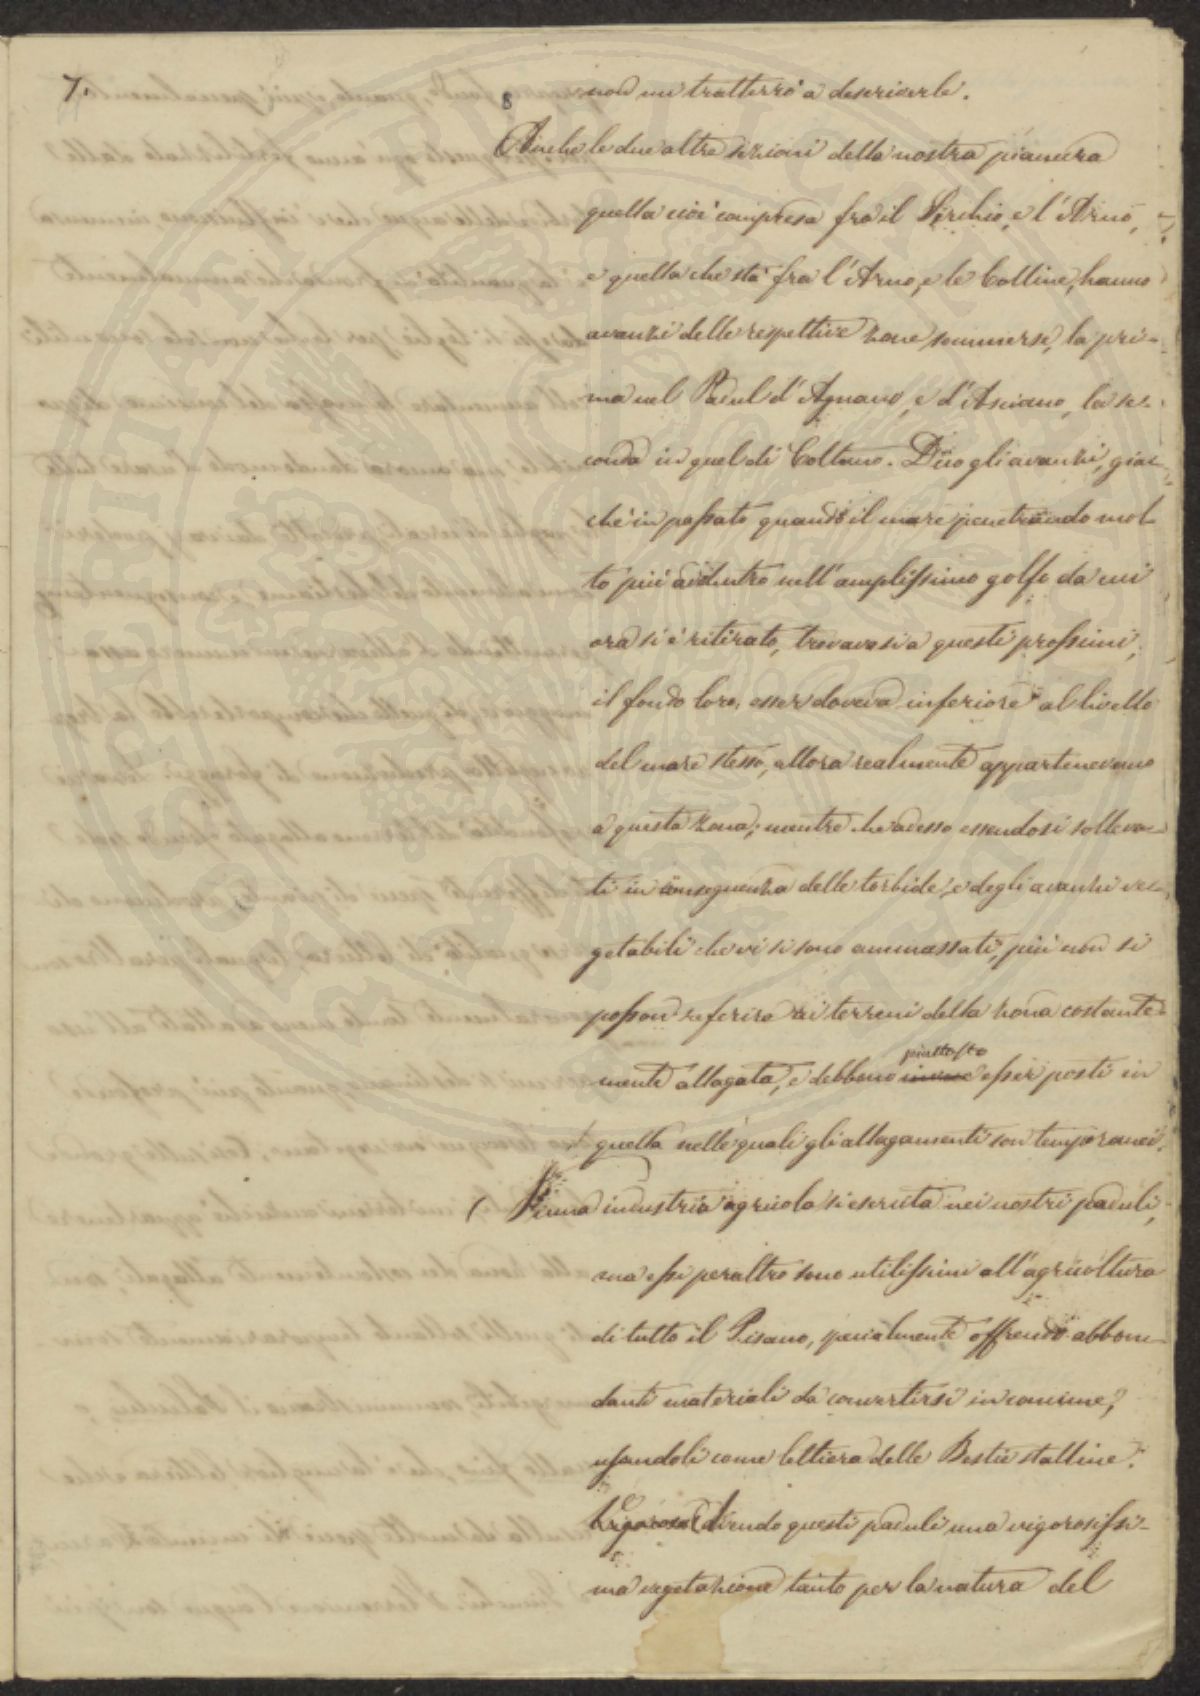 7.
8
non mi tratterrò a descriverli.
Anche le due altre sezioni della nostra pianura
quella cioè compresa fra il Serchio, e l'Arno,
e quella che stà fra l'Arno, e le Colline, hanno
avanzi delle respettive zone sommerse, la pri-
ma nel Padul d'Agnano, e d'Asciano, la se-
conda in quel di Coltano. Dico gli avanzi, giac-
chè in passato quando il mare penetrando mol-
to più addentro nell'amplissimo golfo da cui
ora si è ritirato, trovavasi a questi prossimi,
il fondo loro, esser doveva inferiore al livello
del mare stesso, allora realmente appartenevano
a questa zona; mentre che adesso essendosi solleva-
ti in conseguenza delle torbide, e degli avanzi ve-
getabili che vi si sono ammassati, più non si
posson referire ai terreni della zona costante-
mente allagata, e debbono invece esser posti in
piuttosto
quella nelle quali gli allagamenti son temporanei.
( Niuna industria agricola si esercita nei nostri paduli,
ma essi peraltro sono utilissimi all'agricoltura
di tutto il Pisano, specialmente offrendo abbon-
danti materiali da convertirsi in concime,
usandoli come lettiera delle Bestie stalline.
Avendo questi paduli una vigorosissi-
ma vegetazione tanto per la natura del